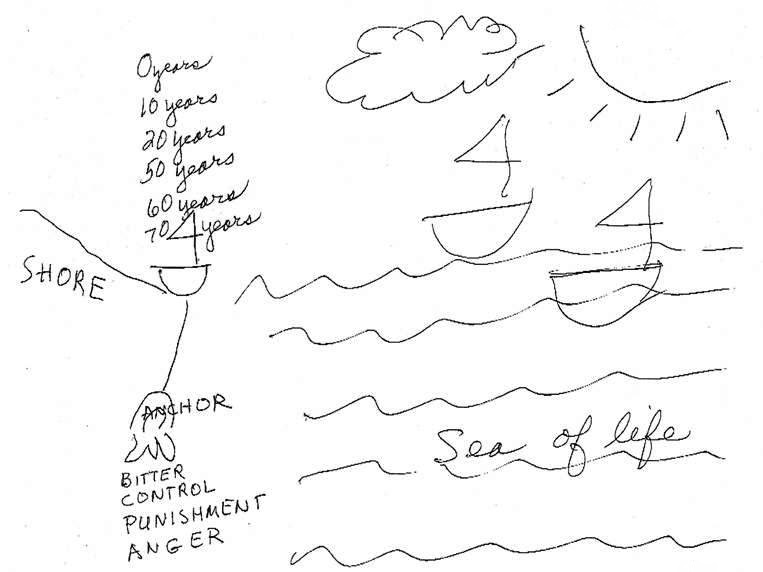 0 years
10 years
20 years
50 years
60 years
70 years
SHORE
ANCHOR
Sea of life
BITTER
CONTROL
PUNISHMENT
ANGER